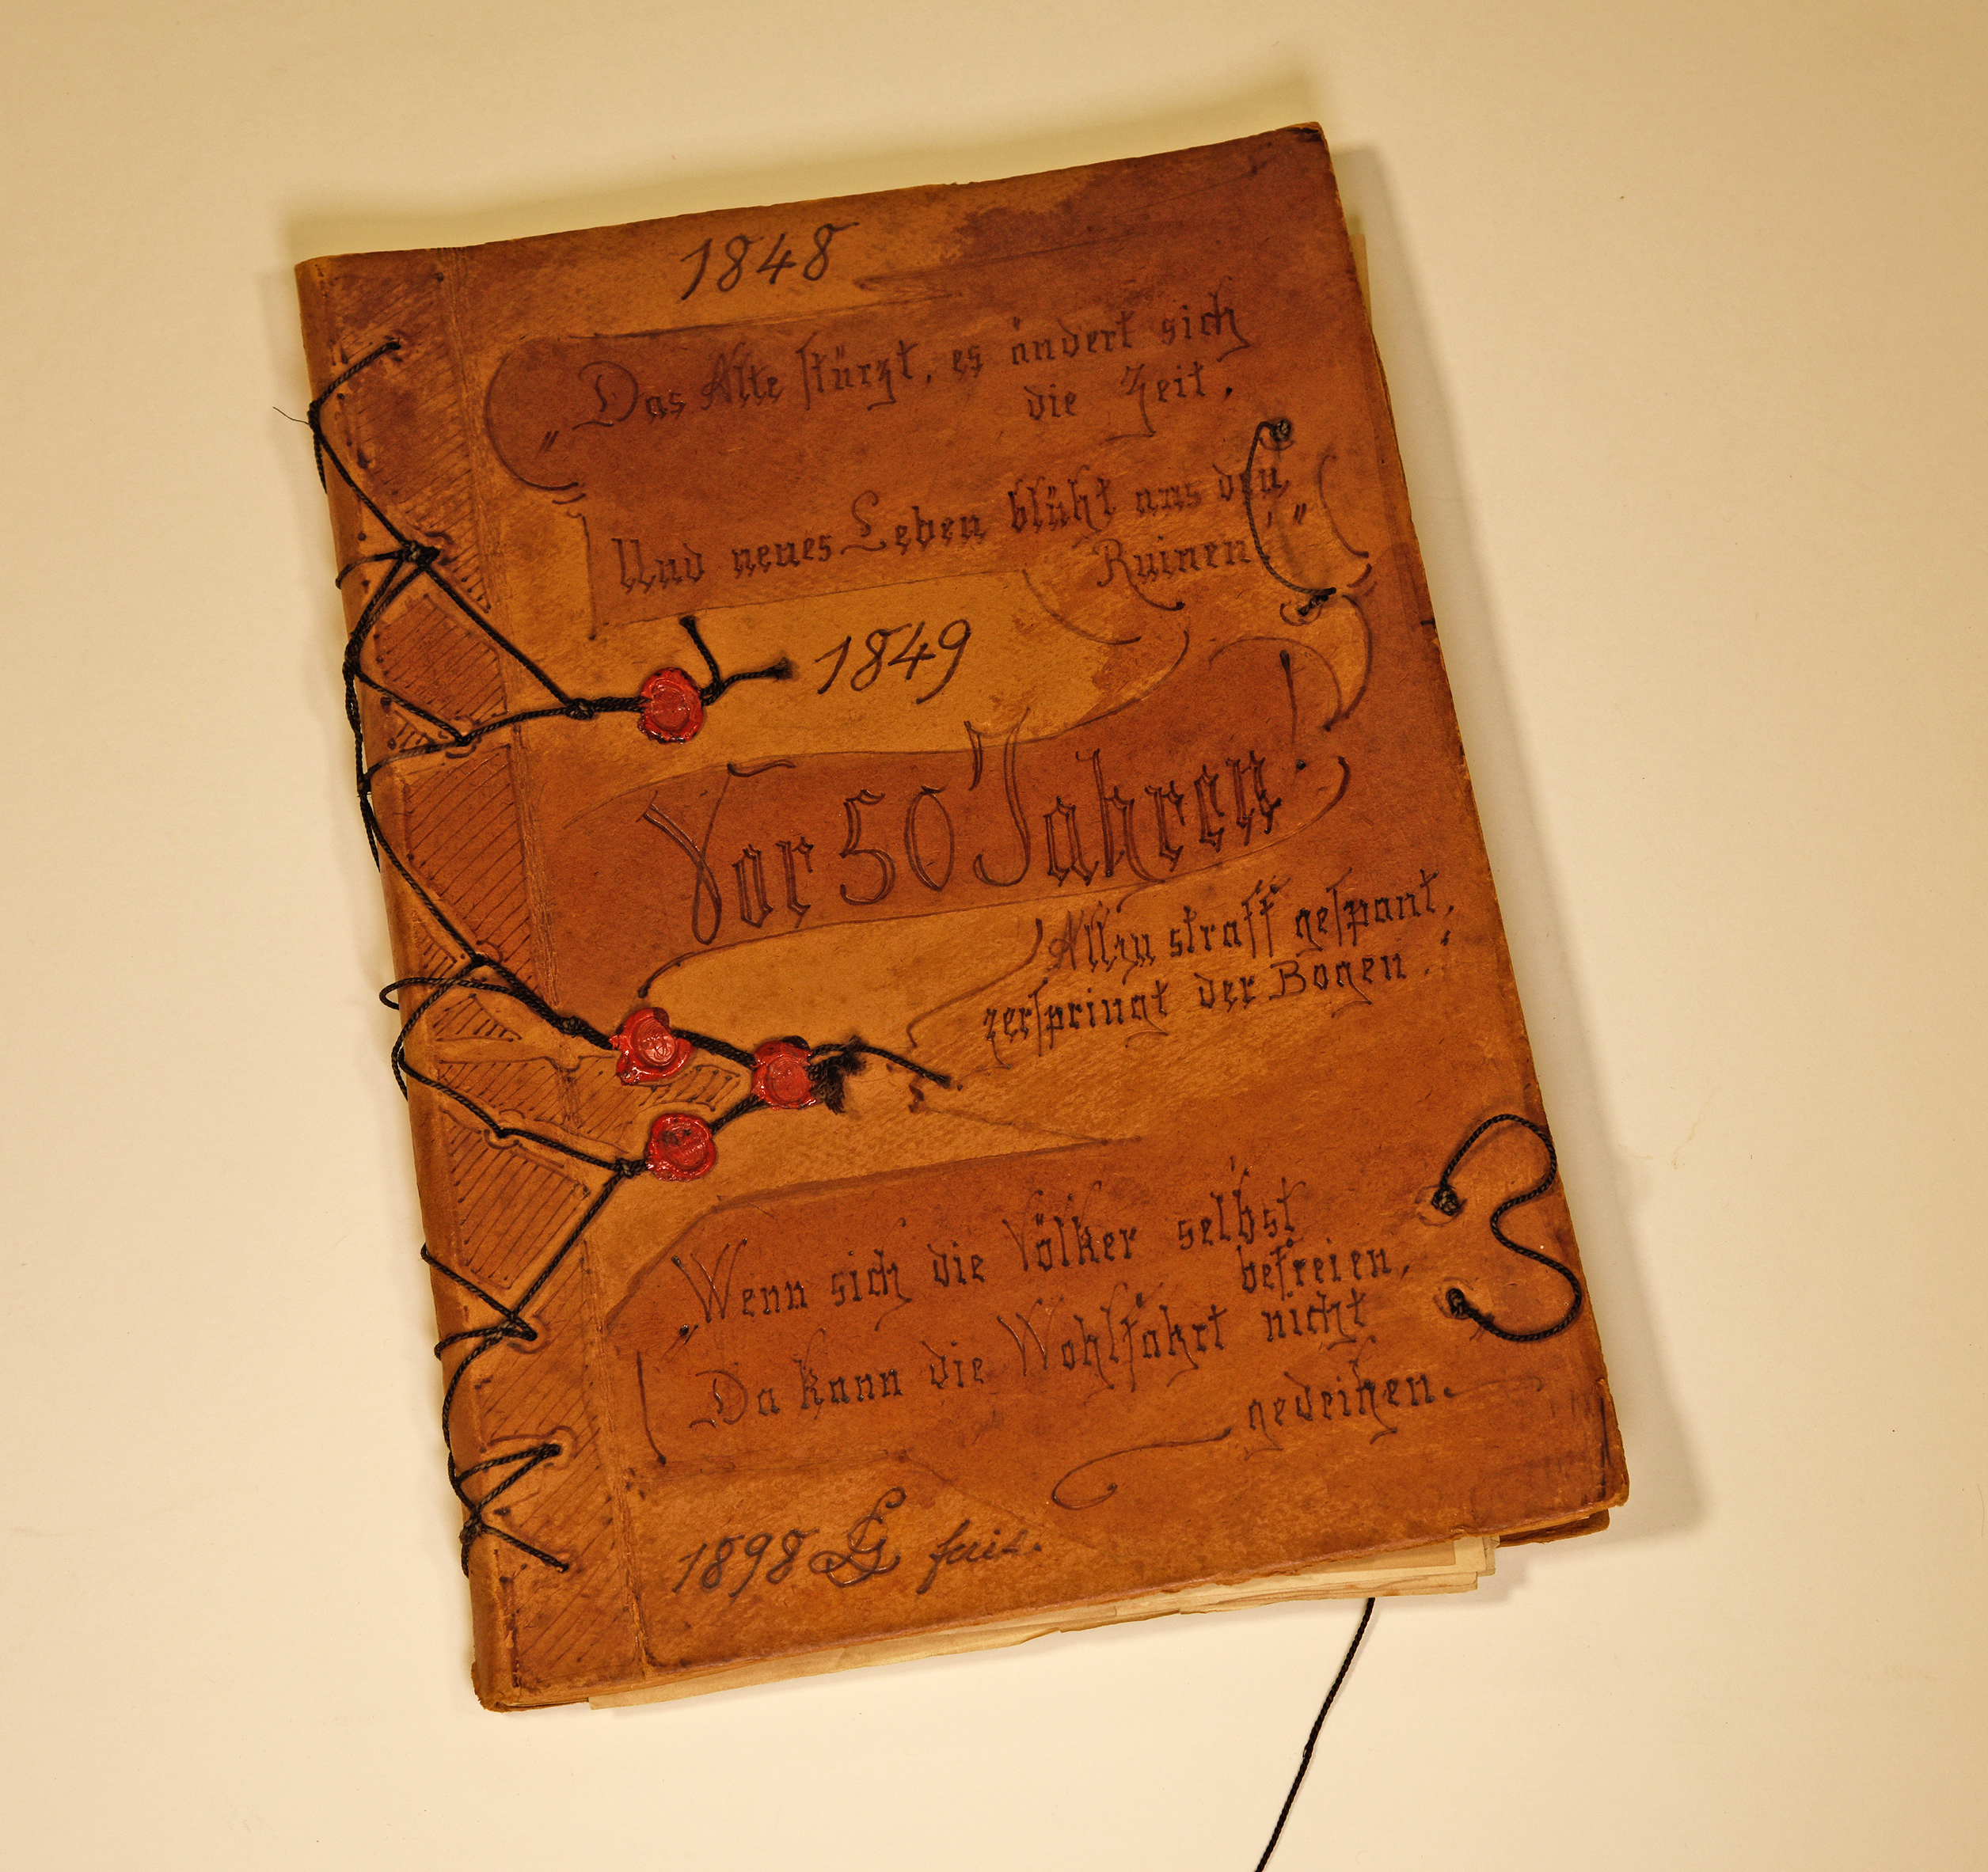 1848
„Das Alte stürzt, es ändert sich
die Zeit,
Und neues Leben blüht aus den
Ruinen.“
1849
Vor 50 Jahren!
Allzu straff gespant,
zerspringt der Bogen.
„Wenn sich die Völker selbst
befreien,
Da kann die Wohlfahrt nicht
gedeihen.
1898